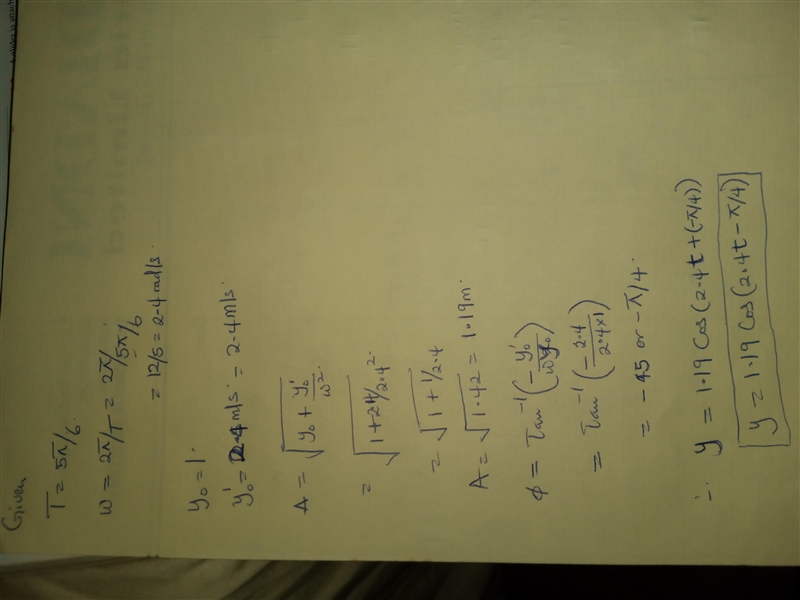 Given
T = 5π/6.
W = 2π/T = 2π/5π/6
= 12/5 = 2.4 rad/s.
y₀ = 1.
y₀' = 2.4 m/s. = 2.4 m/s.
A = √(y₀ + y₀'/ω²)
= √(1 + 2.4/2.4²)
= √(1 + 1/2.4)
A = √1.42 = 1.19m.
φ = Tan⁻¹(-y₀'/ωy₀)
= Tan⁻¹(-2.4/2.4×1)
= -45 or -π/4.
∴ y = 1.19 Cos(2.4t + (-π/4))
y = 1.19 Cos(2.4t - π/4)